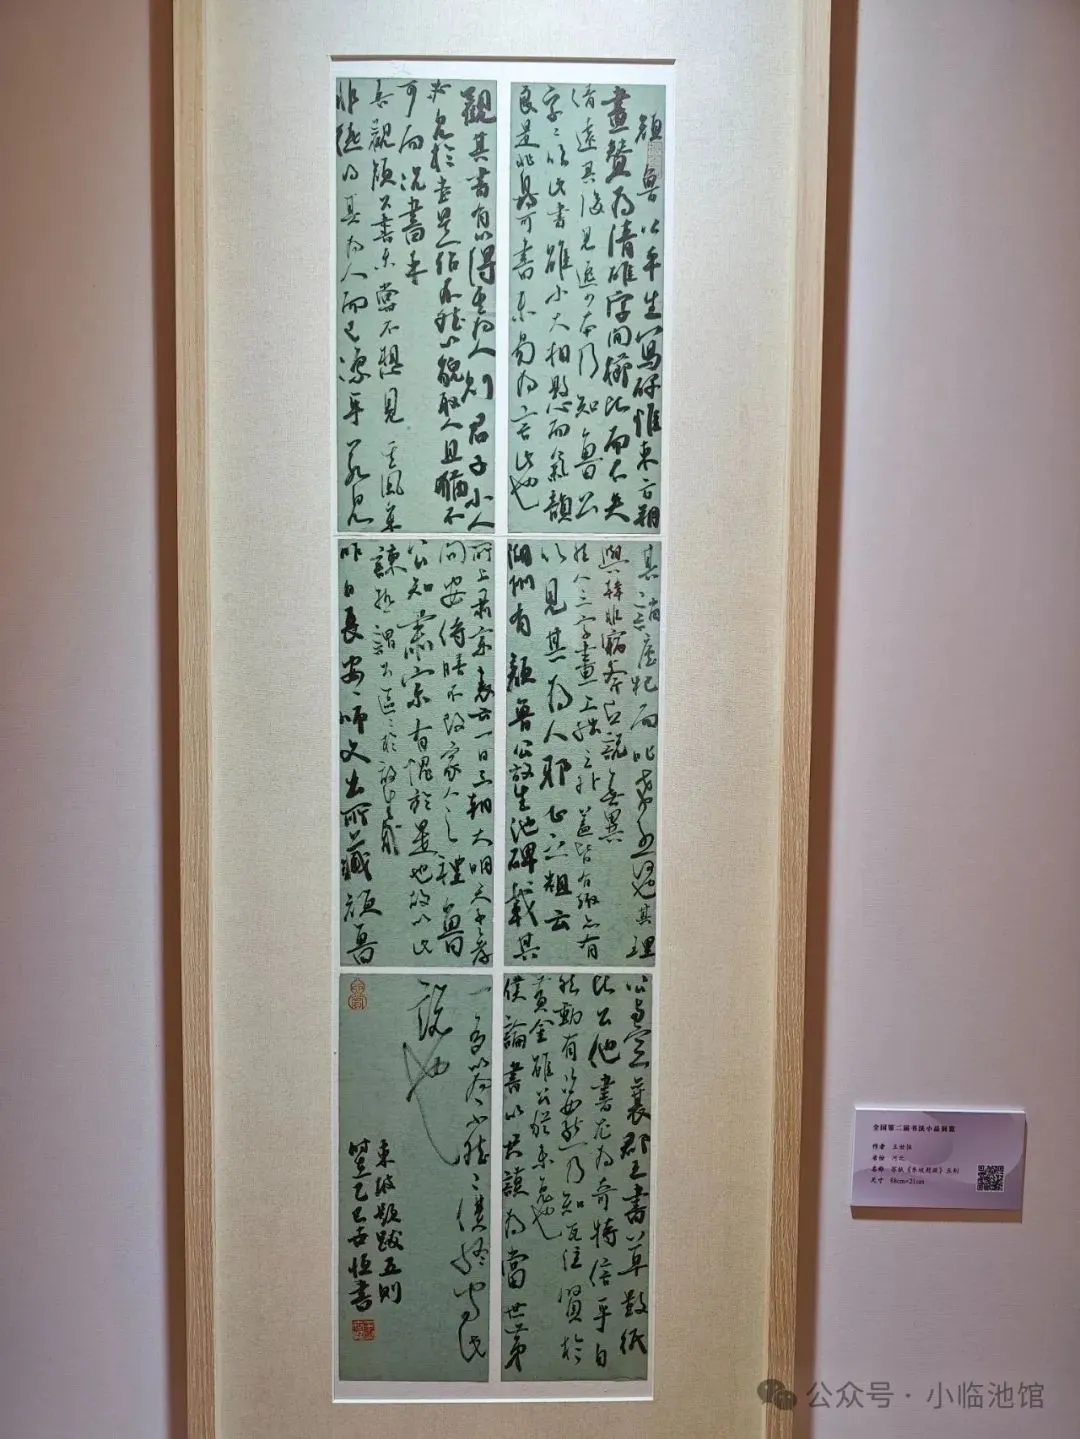 顔魯公平生寫碑惟東方朔
畫贊為清雄字間櫛比而不失
清遠其後見逸少本乃知魯公
字〻臨此書雖小大相懸而氣韻
良是非得可書未易為言此也
觀其書有以得其為人則君子小人
必見於書是殆不然以貌取人且猶不
可而況書乎
吾觀顔公書未嘗不想見其風采
非徒得其為人而已凜乎若見
其誚盧杞而叱希烈何也其理
與韓非竊斧之說無異
然人之字畫工拙之外蓋皆有趣亦有
以見其為人邪正之粗云
湖州有顔魯公放生池碑載其
所上肅宗表云一日三朝大明天子之孝
問安侍膳不改家人之禮魯
公知肅宗有愧於是也故以此
諫孰謂公區〻於放生哉
昨日長安〻師文出所藏顔魯
公與定襄郡王書草數紙
比公他書尤為奇特信手自
然動有姿態乃知瓦注賢於
黃金雖公猶未免也
僕論書以君謨為當世第
一多以為不然〻僕終守此
說也
東坡題跋五則
時至乙巳世恒書
全国第二届书法小品展览
作者 王世恒
省份 河北
名称 苏轼《东坡题跋》五则
尺寸 68cm×21cm
公众号·小临池馆